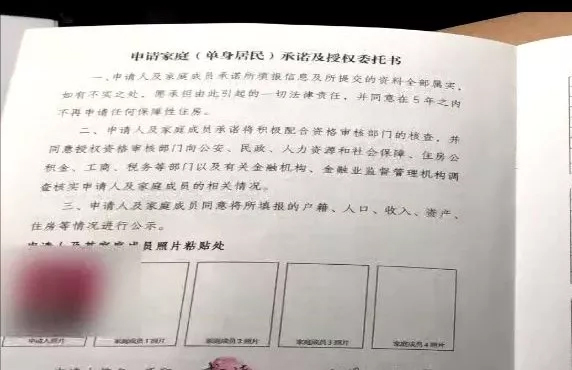 申请家庭（单身居民）承诺及授权委托书
一、申请人及家庭成员承诺所填报信息及所提交的资料全部属实，
如有不实之处，愿承担由此引起的一切法律责任，并同意在5年之内
不再申请任何保障性住房。
二、申请人及家庭成员承诺将积极配合资格审核部门的核查，并
同意授权资格审核部门向公安、民政、人力资源和社会保障、住房公
积金、工商、税务等部门以及有关金融机构、金融业监督管理机构调
查核实申请人及家庭成员的相关情况。
三、申请人及家庭成员同意将所填报的户籍、人口、收入、资产、
住房等情况进行公示。
申请人及其家庭成员照片粘贴处
申请人照片 家庭成员1照片 家庭成员2照片 家庭成员3照片 家庭成员4照片